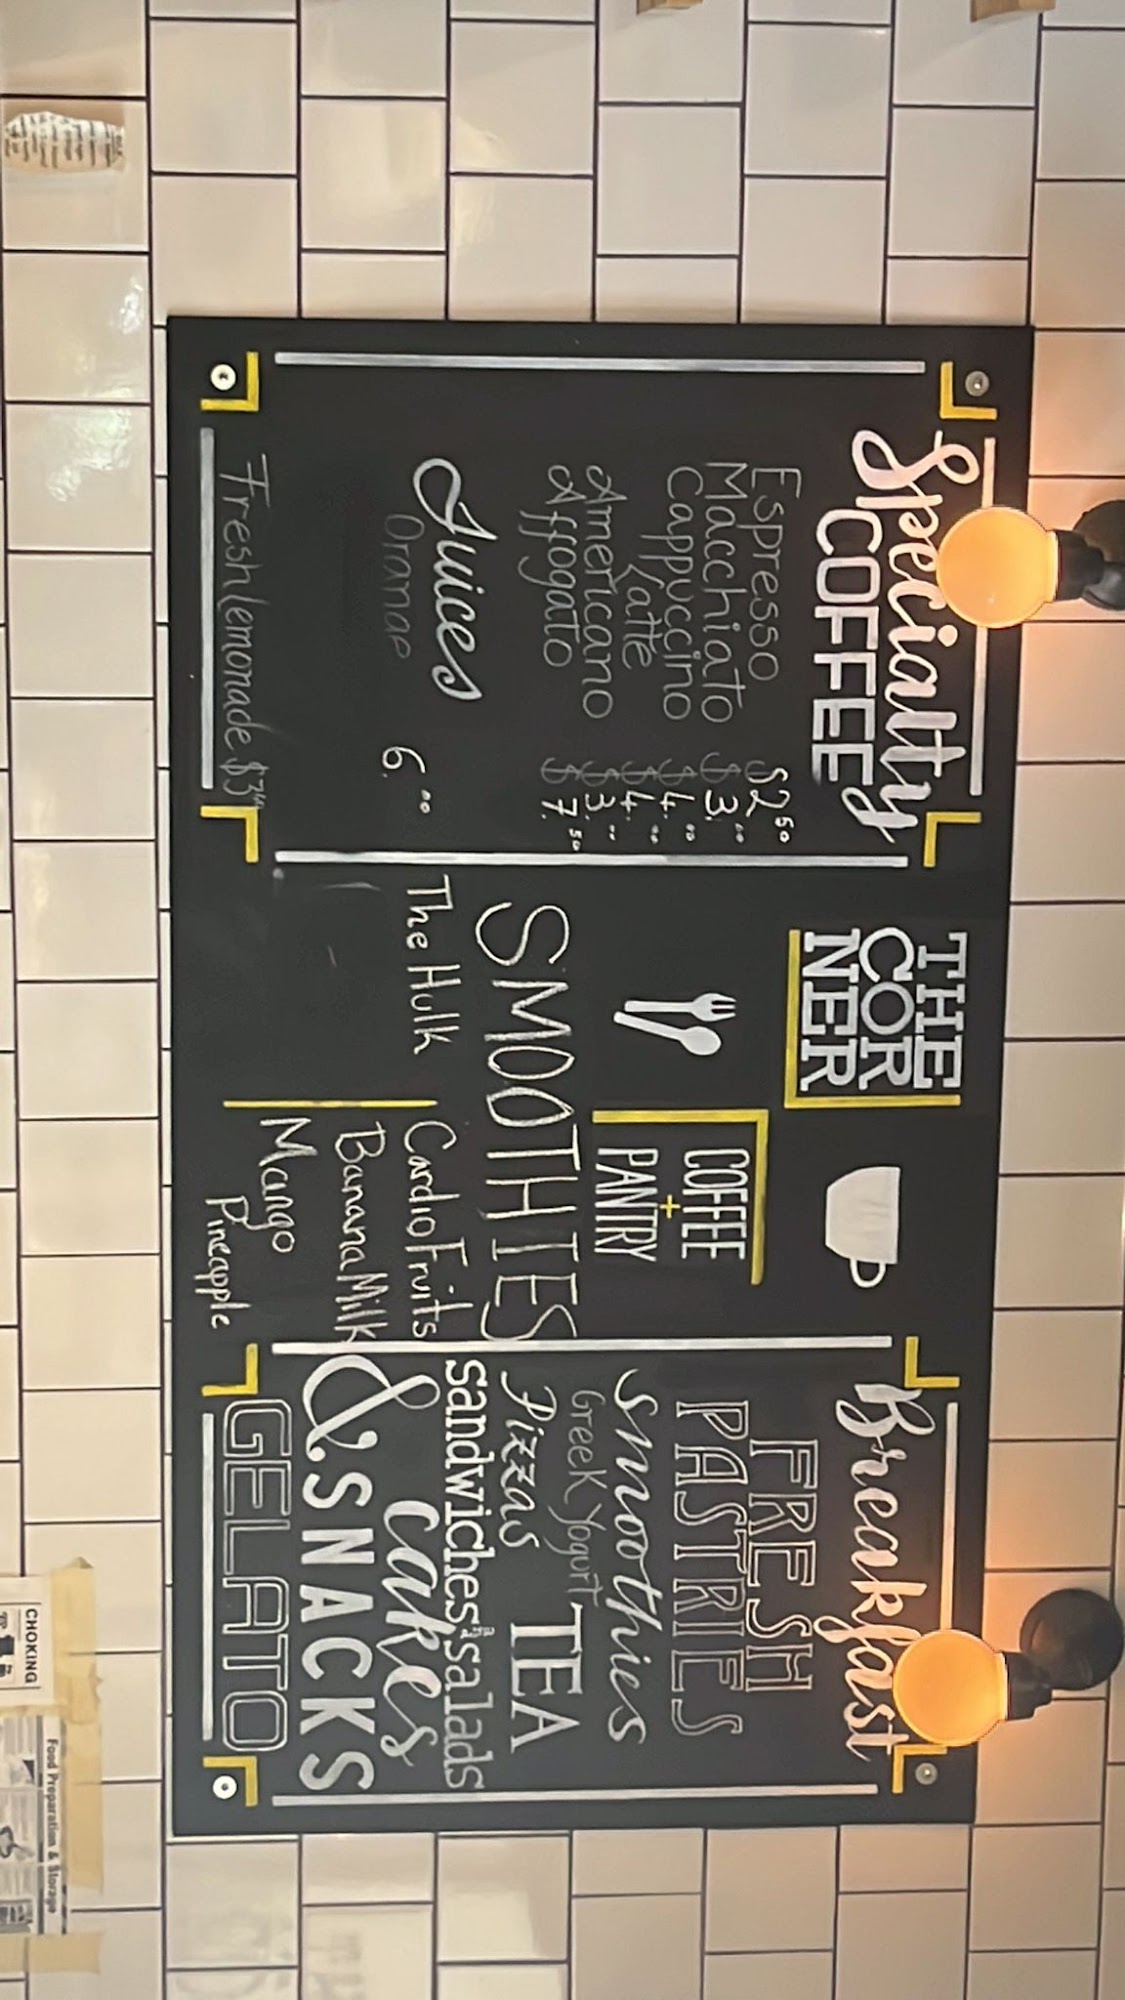 Specialty
COFFEE
Espresso $2.50
Macchiato $3.00
Cappuccino $4.00
Latte $4.00
Americano $3.00
Affogato $7.50
Juices
Orange 6.00
Fresh lemonade $3
THE
COR
NER
COFFEE
+
PANTRY
SMOOTHIES
The Hulk
Cardio Fruits
Banana Milk
Mango
Pineapple
Breakfast
FRESH
PASTRIES
smoothies
Greek Yogurt
Pizzas TEA
sandwiches salads
cakes
& SNACKS
GELATO
CHOKING
Food Preparation & Storage